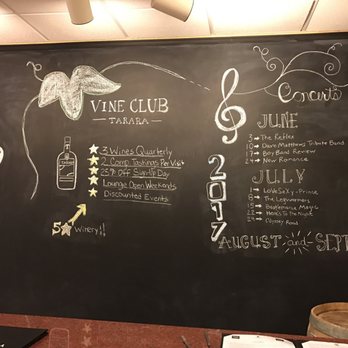 VINE CLUB
- TARARA -
3 Wines Quarterly
2 Comp Tastings Per Visit
25% Off Sign-Up Day
Lounge Open Weekends
Discounted Events
5 Winery!!
Concerts
2017
JUNE
3 → The Reflex
10 → Dave Matthews Tribute Band
17 → Boy Band Review
24 → New Romance
JULY
1 → LoVeSeXy - Prince
8 → The Legwarmers
15 → Beatlemania Magic
22 → Here's To The Night
29 → Odyssey Road
AUGUST and SEPT